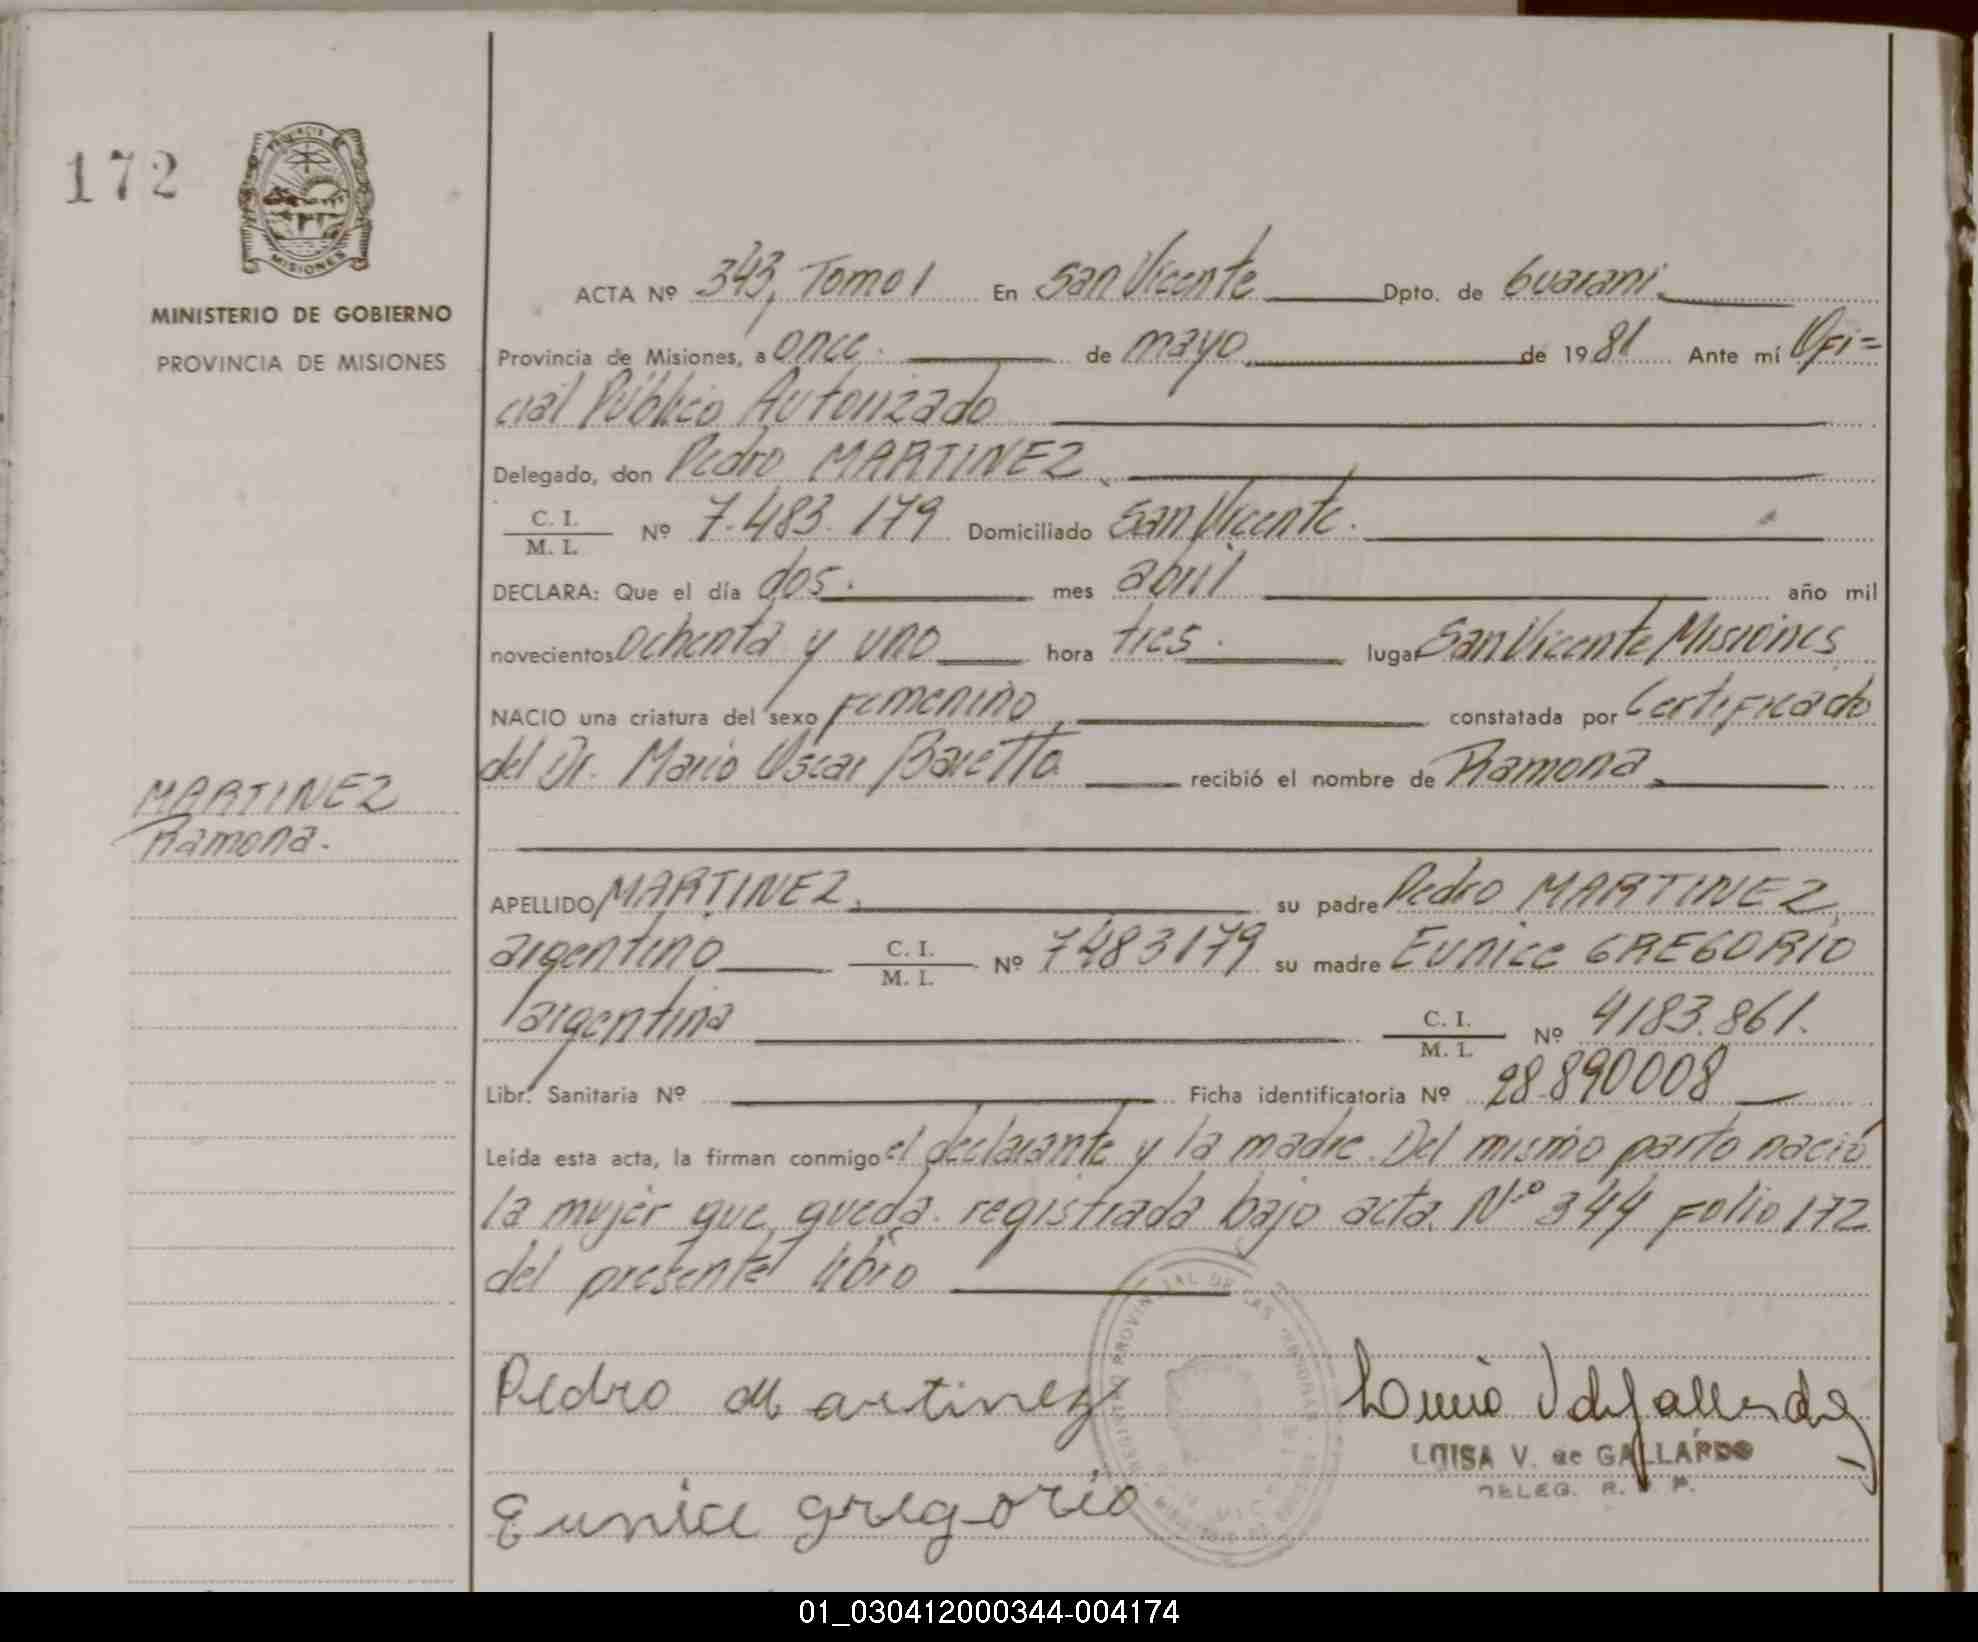 172
PROVINCIA DE
MISIONES
MINISTERIO DE GOBIERNO
PROVINCIA DE MISIONES
ACTA Nº 343, Tomo I En San Vicente Dpto. de Guaraní.
Provincia de Misiones, a once. de mayo de 1981 Ante mí Ofi=
cial Público Autorizado
Delegado, don Pedro MARTINEZ,
C. I.
M. I. Nº 7.483.179 Domiciliado San Vicente.
DECLARA: Que el día dos. mes abril año mil
novecientos ochenta y uno hora tres. lugar San Vicente Misiones
NACIO una criatura del sexo Femenino, constatada por Certificado
del Dr. Mario Oscar Baretto recibió el nombre de Ramona,
MARTINEZ
Ramona.
APELLIDO MARTINEZ, su padre Pedro MARTINEZ,
argentino C. I.
M. I. Nº 7483179 su madre Eunice GREGORIO
argentina C. I.
M. I. Nº 4183.861.
Libr. Sanitaria Nº Ficha identificatoria Nº 28.890008
Leída esta acta, la firman conmigo el declarante y la madre. Del mismo parto nació
la mujer que queda registrada bajo acta Nº 344 Folio 172
del presente libro
Pedro Martinez
LUISA V. de GALLARDO
DELEG. R. P.
Eunice gregorio
01_030412000344-004174